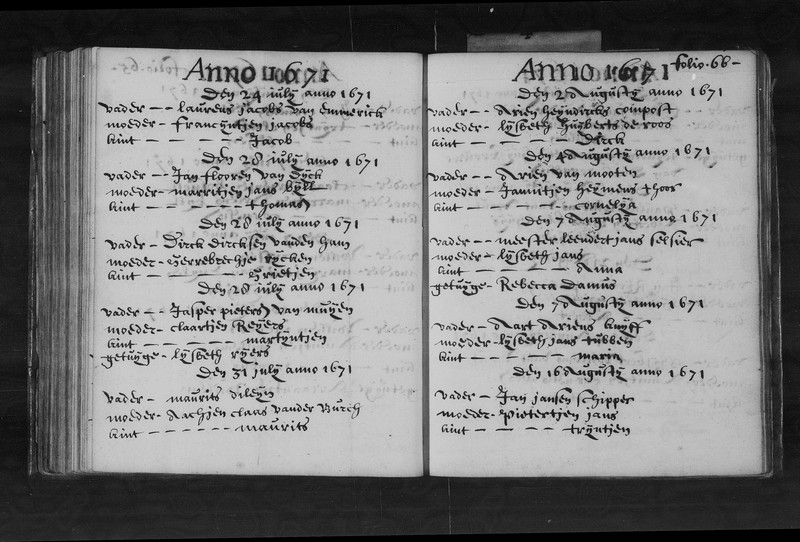 Anno 1671
Den 24 july anno 1671
vader - - laurens jacobs van emmerick
moeder - francyntjen jacobs
kint - - - - - Jacob
Den 28 july anno 1671
vader - - Jan flooren van Dyck
moeder - marritjen jans
kint - - - - - thomas
Den 28 july anno 1671
vader - Dirck dircksen vanden ham
moeder - Herreberchje rycken
kint - - - - - Grietjen
Den 28 july anno 1671
vader - - Jasper pieters van muyen
moeder - claartjen Reyers
kint - - - - - martyntjen
getuyge - lysbeth ryers
Den 31 july anno 1671
vader - maurits dileyn
moeder - Aachjen claas vander Burch
kint - - - - - maurits
folio. 66 -
Anno 1671
Den 2 Augusty anno 1671
vader - - Arien heyndircks compost
moeder - lysbeth huyberts de roos
kint - - - - - Dirck
Den 4 Augusty anno 1671
vader - - Arien van mooten
moeder - Jannitjen heymens thoor
kint - - - - - cornelya
Den 7 Augusty anno 1671
vader - - meester leendert jans selsier
moeder - lysbeth jans
kint - - - - - Anna
getuyge - Rebecca Damus
Den 7 Augusty anno 1671
vader - Aart Ariens kuyff
moeder - lysbeth jans tubben
kint - - - - - maria
Den 16 Augusty anno 1671
vader - Jan jansen schipper
moeder - pietertjen jans
kint - - - - - tryntjen